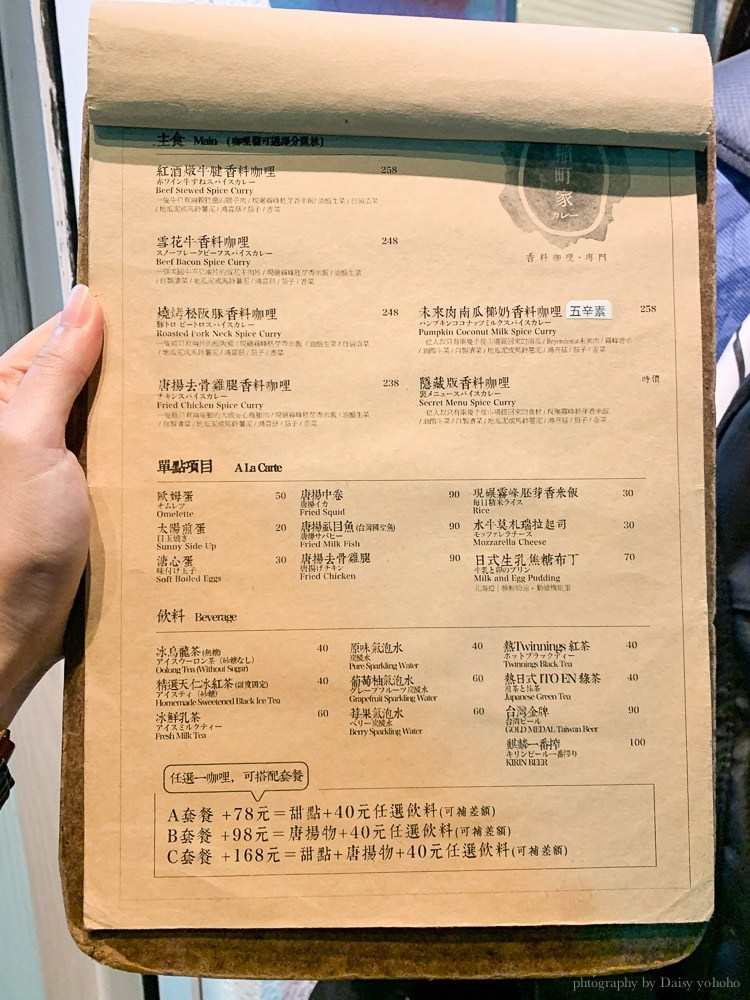 主食 Main (咖哩醬可選擇分區放)
稻町家
カレー
香料咖哩·專門
紅酒燉牛腱香料咖哩 258
赤ワイン牛すねスパイスカレー
Beef Stewed Spice Curry
雪花牛香料咖哩 248
スノーフレークビーフスパイスカレー
Beef Bacon Spice Curry
燒烤松阪豚香料咖哩 248
豚トロ ビートロスパイスカレー
Roasted Pork Neck Spice Curry
唐揚去骨雞腿香料咖哩 238
チキンスパイスカレー
Fried Chicken Spice Curry
未來肉南瓜椰奶香料咖哩 五辛素 258
パンプキンココナッツミルクスパイスカレー
Pumpkin Coconut Milk Spice Curry
隱藏版香料咖哩 時價
裏メニュースパイスカレー
Secret Menu Spice Curry
單點項目 A La Carte
歐姆蛋 50
オムレフ
Omelette
太陽煎蛋 20
目玉焼き
Sunny Side Up
溏心蛋 30
味付け玉子
Soft Boiled Eggs
唐揚中卷 90
唐揚イカ
Fried Squid
唐揚虱目魚(台灣國聖魚) 90
唐揚サバヒー
Fried Milk Fish
唐揚去骨雞腿 90
唐揚げチキン
Fried Chicken
現碾霧峰胚芽香米飯 30
毎日精米ライス
Rice
水牛莫札瑞拉起司 30
モッツァレラチーズ
Mozzarella Cheese
日式生乳焦糖布丁 70
牛乳と卵のプリン
Milk and Egg Pudding
飲料 Beverage
冰烏龍茶(無糖) 40
アイスウーロン茶（砂糖なし）
Oolong Tea (Without Sugar)
精選天仁冰紅茶(甜度固定) 40
アイスティ（砂糖）
Homemade Sweetened Black Ice Tea
冰鮮乳茶 60
アイスミルクティー
Fresh Milk Tea
原味氣泡水 40
炭酸水
Pure Sparkling Water
葡萄柚氣泡水 60
グレープフルーツ炭酸水
Grapefruit Sparkling Water
莓果氣泡水 60
ベリー炭酸水
Berry Sparkling Water
熱Twinnings 紅茶 40
ホットブラックティー
Twinnings Black Tea
熱日式 ITO EN 綠茶 40
煎茶と抹茶
Japanese Green Tea
台灣金牌 90
台湾ビール
GOLD MEDAL Taiwan Beer
麒麟一番搾 100
キリンビール一番搾り
KIRIN BEER
任選一咖哩，可搭配套餐
A套餐 +78元=甜點+40元任選飲料(可補差額)
B套餐 +98元=唐揚物+40元任選飲料(可補差額)
C套餐 +168元=甜點+唐揚物+40元任選飲料(可補差額)
phtography by Daisy yohoho